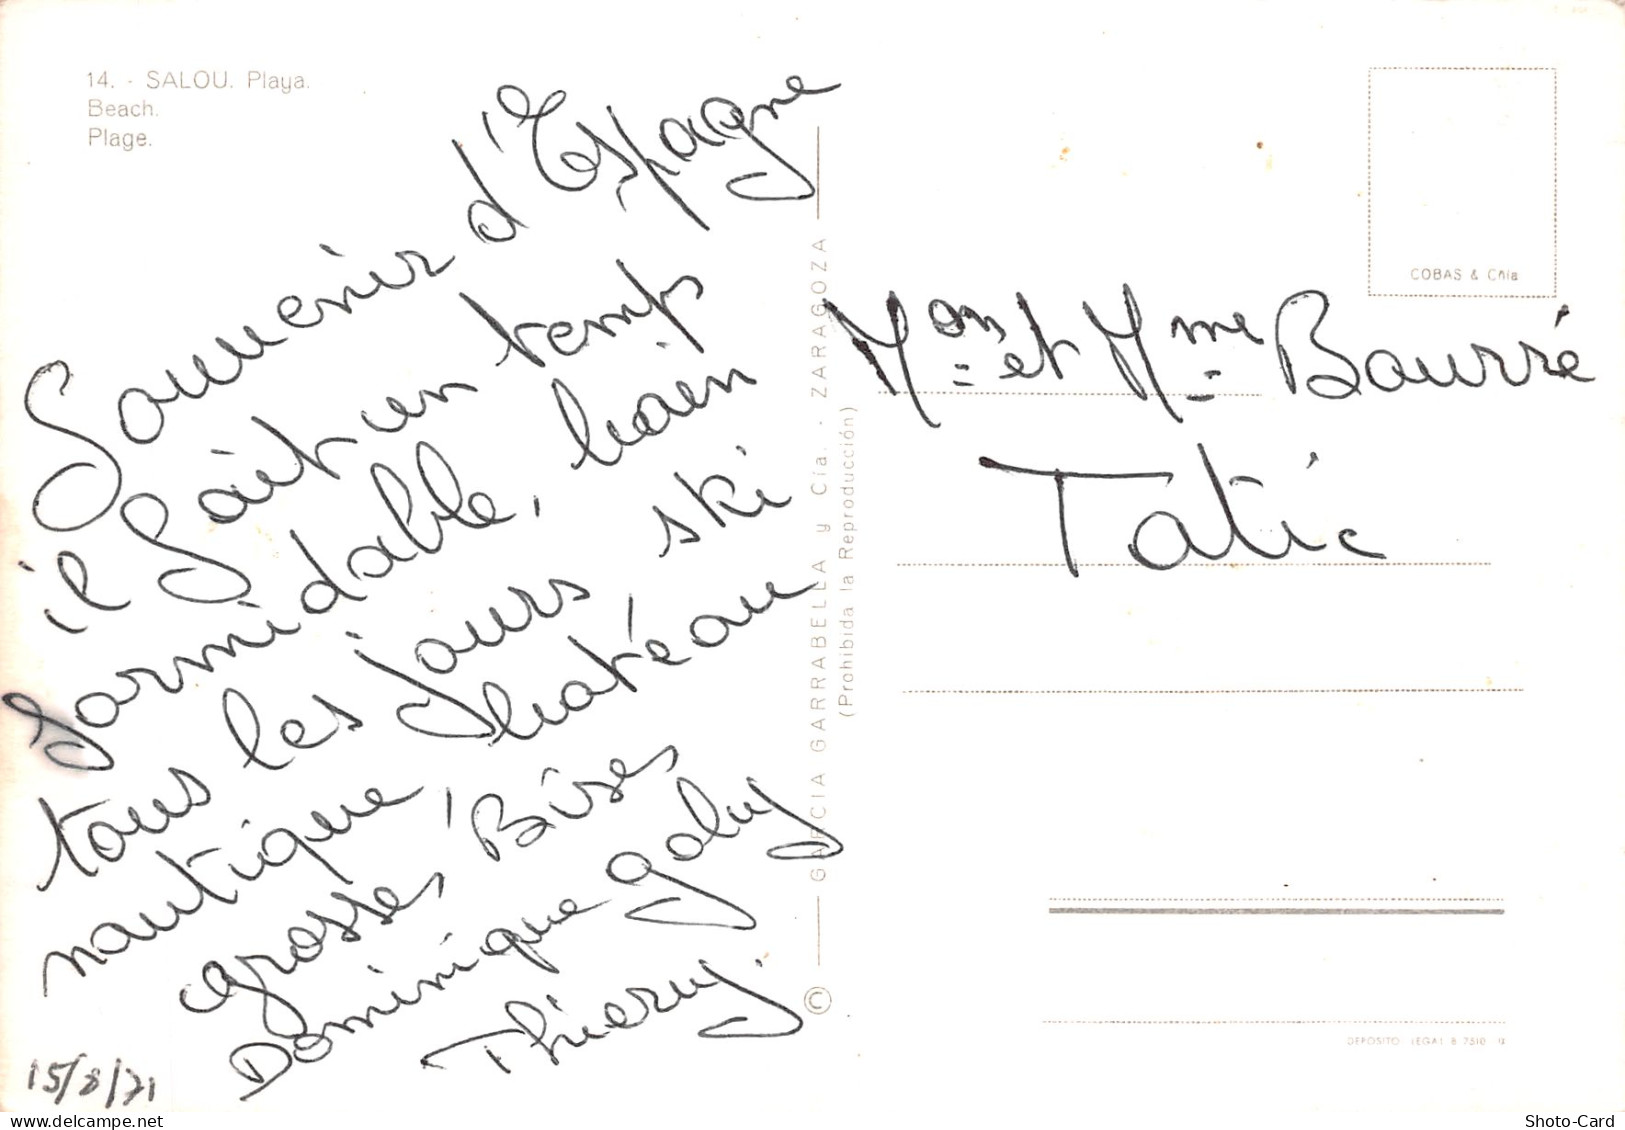 14. - SALOU. Playa.
Beach.
Plage.
Souvenir d'Espagne
il fait un temps
formidable, bain
tous les jours ski
nautique, chatéau
grosses Bises
Dominique Goluy
Thierry.
15/8/71
GARCIA GARRABELLA y Cía. - ZARAGOZA
(Prohibida la Reproducción)
©
COBAS & Cñia
Mon et Mme Bourré
Tatic
DEPOSITO LEGAL B 7510
Shoto-Card